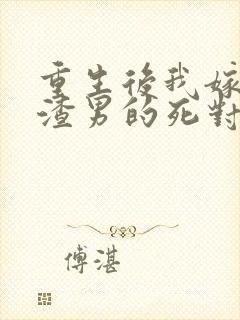 重生後我嫁
渣男的死對
傅湛